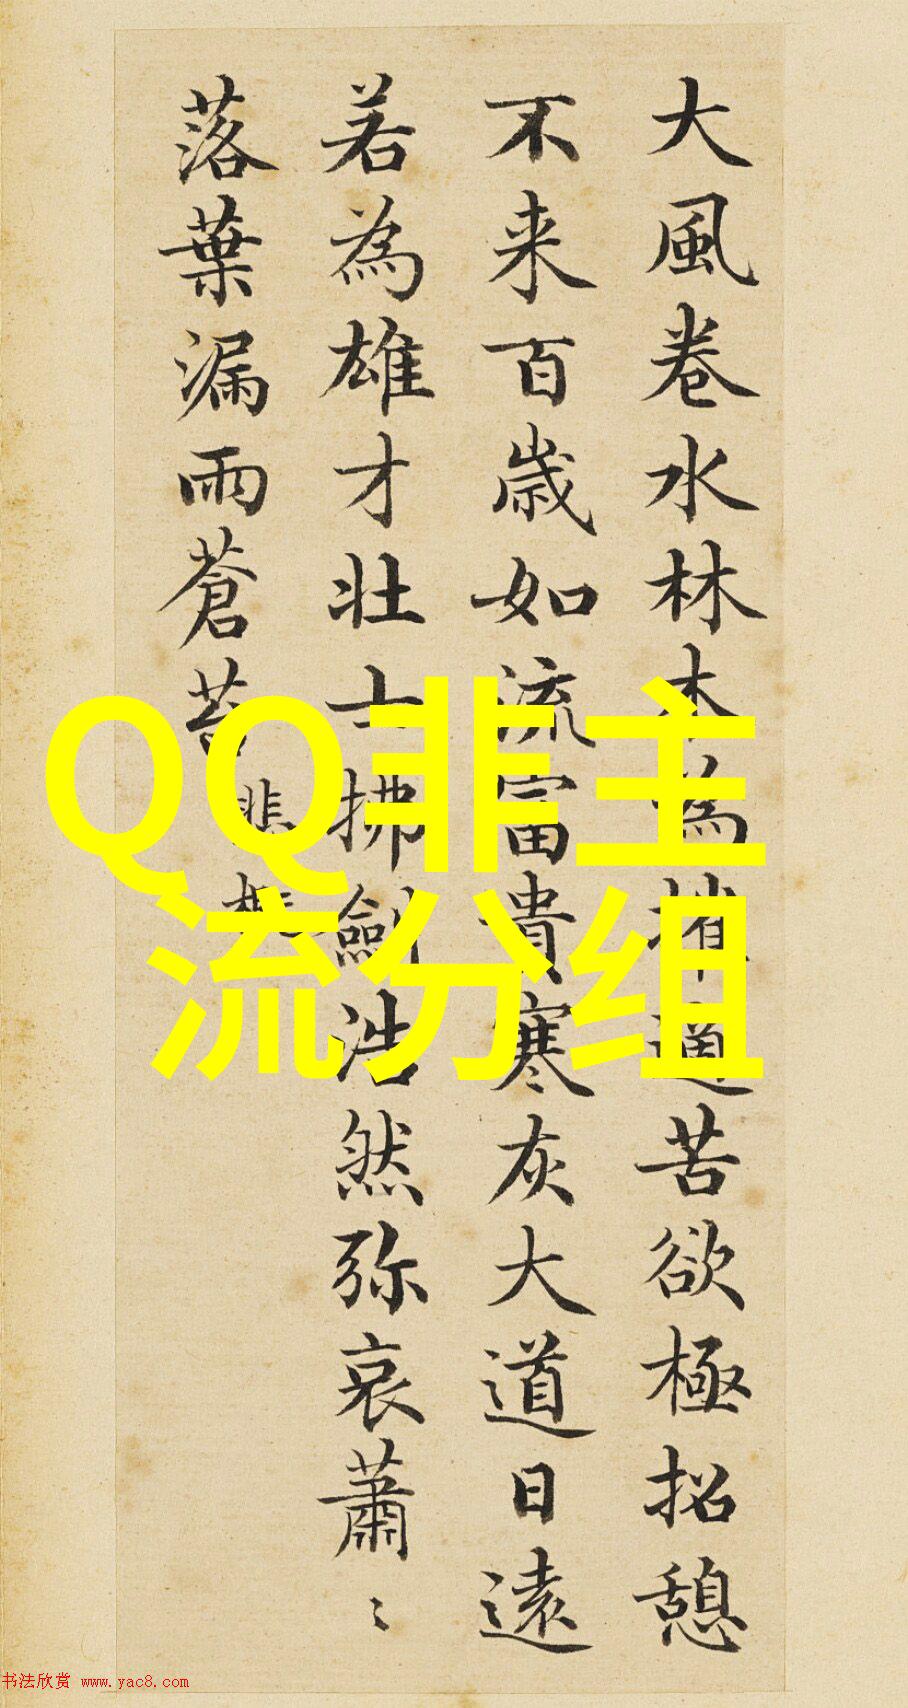 大風卷水林木為摧適苦欲極招憩
不来百歳如流富貴寒灰大道日遠
若為雄才壮士拂劍浩然弥哀蕭〻
落葉漏雨蒼苔
悲慨
QQ非主
流分组
书法欣赏 www.yac8.com